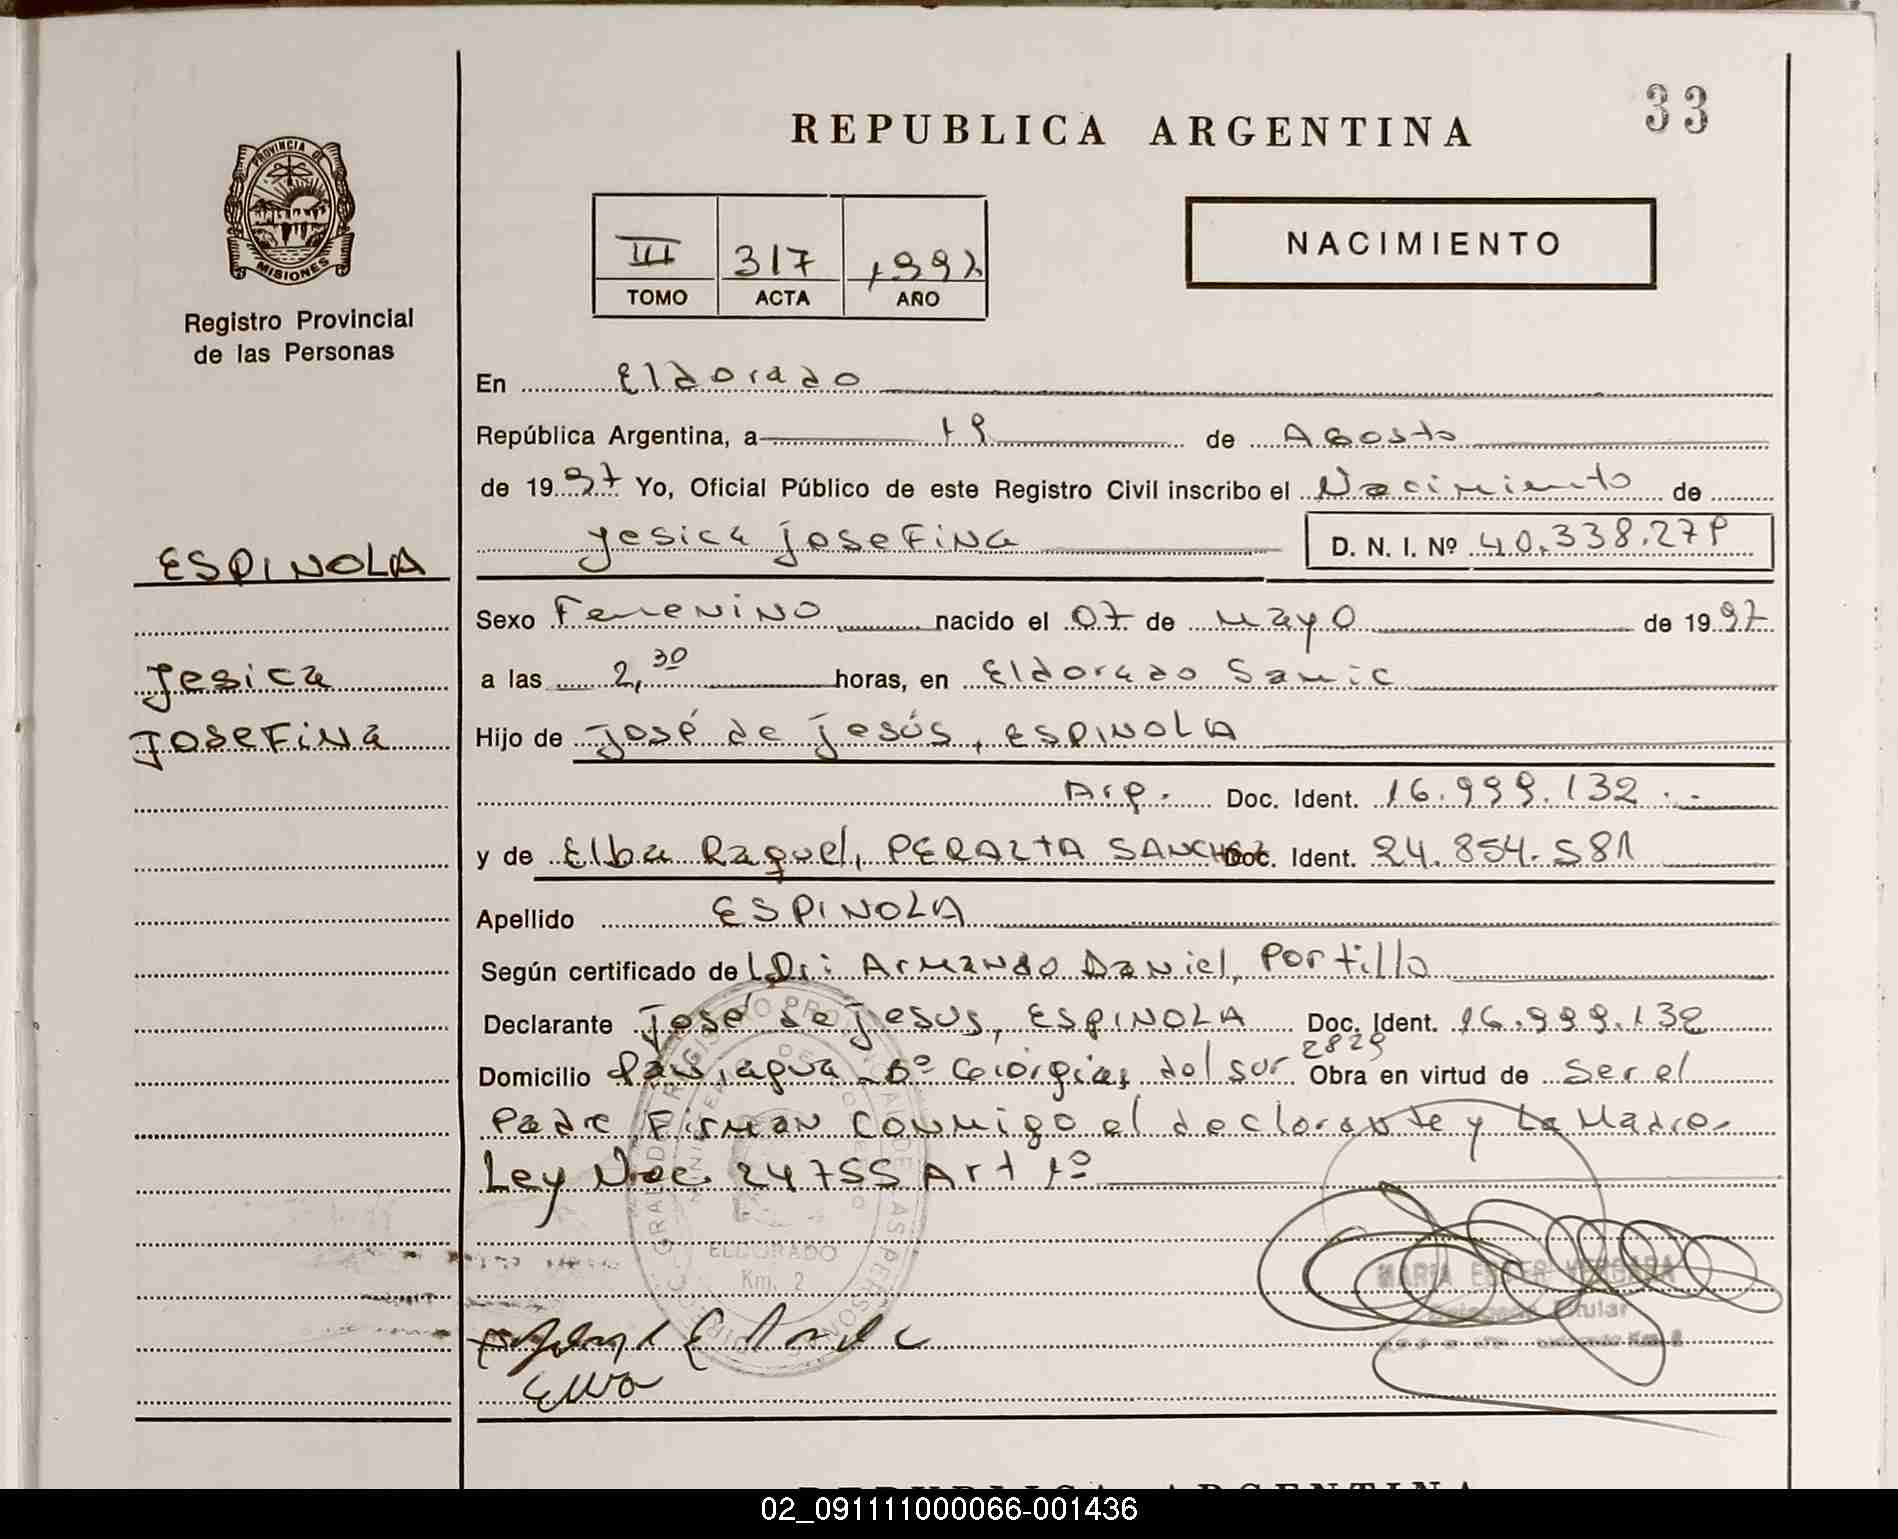 33
REPUBLICA ARGENTINA
PROVINCIA DE
MISIONES
Registro Provincial
de las Personas
III 317 1997
TOMO ACTA AÑO
NACIMIENTO
En Eldorado
República Argentina, a 19 de Agosto
de 1997 Yo, Oficial Público de este Registro Civil inscribo el Nacimiento de
Yesica Josefina D. N. I. Nº 40.338.279
ESPINOLA
Sexo Femenino nacido el 07 de Mayo de 1997
Jesica
a las 2,30 horas, en Eldorado Samic
Josefina
Hijo de José de Jesús, ESPINOLA
Arg. Doc. Ident. 16.999.132.-
y de Elba Raquel, PERALTA SANCHEZ Doc. Ident. 24.854.581
Apellido ESPINOLA
Según certificado de Dr: Armando Daniel, Portillo
Declarante José de Jesus, ESPINOLA Doc. Ident. 16.999.132
Domicilio del sur 2829 Obra en virtud de Ser el
Padre Firman Conmigo el declarante y La Madre.
Ley Nac. 24755 Art 1º
ELDORADO
Km. 2
MARIA ESTER VERGARA
Titular
Elva
REPUBLICA ARGENTINA
02_091111000066-001436